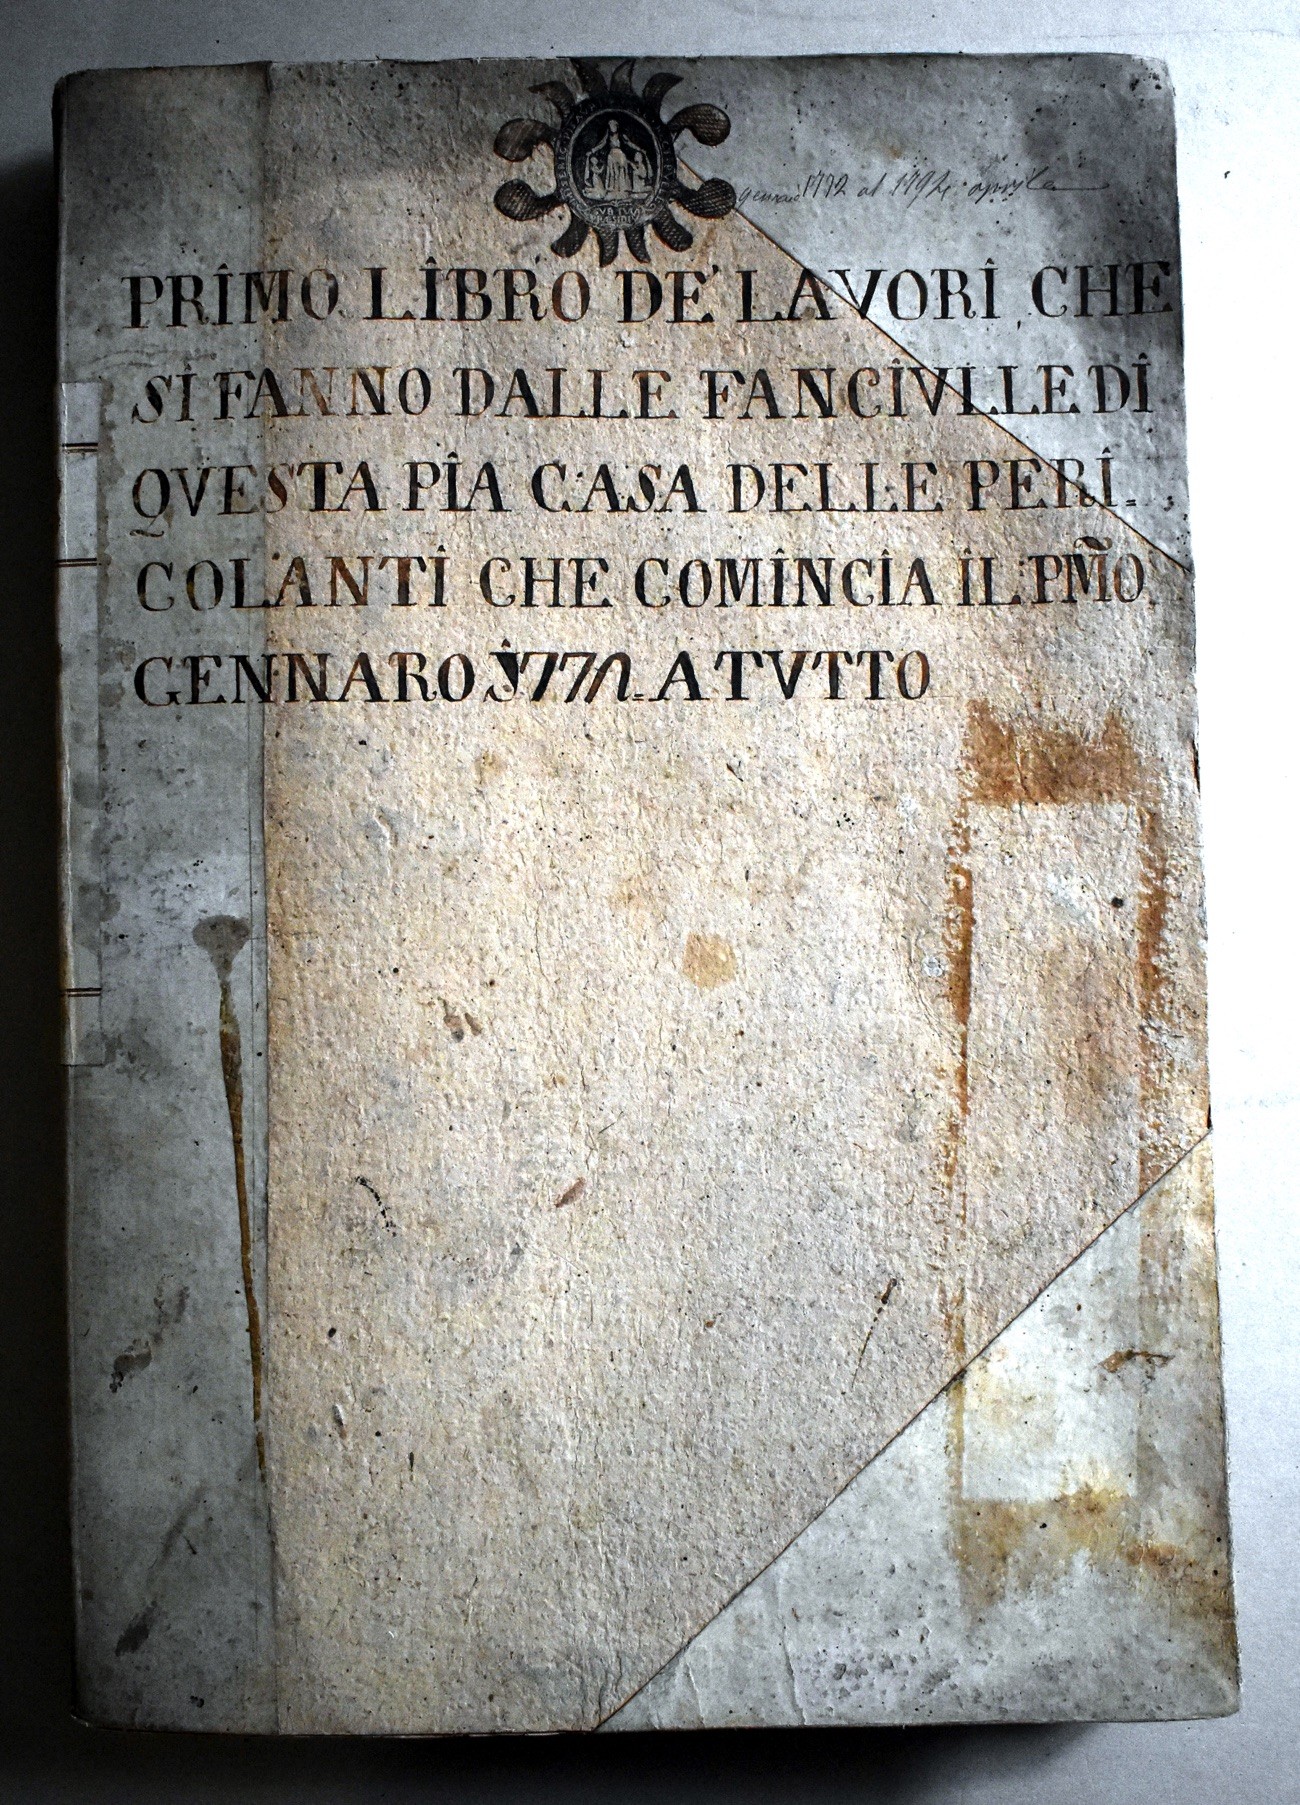 SUB TUUM PRAESIDIUM
gennaio 1772 al 1794 aprile
PRIMO LIBRO DE' LAVORI CHE
SI FANNO DALLE FANCIVLLE DI
QVESTA PIA CASA DELLE PERI=
COLANTI CHE COMINCIA IL PM̃O
GENNARO 1772. A TVTTO